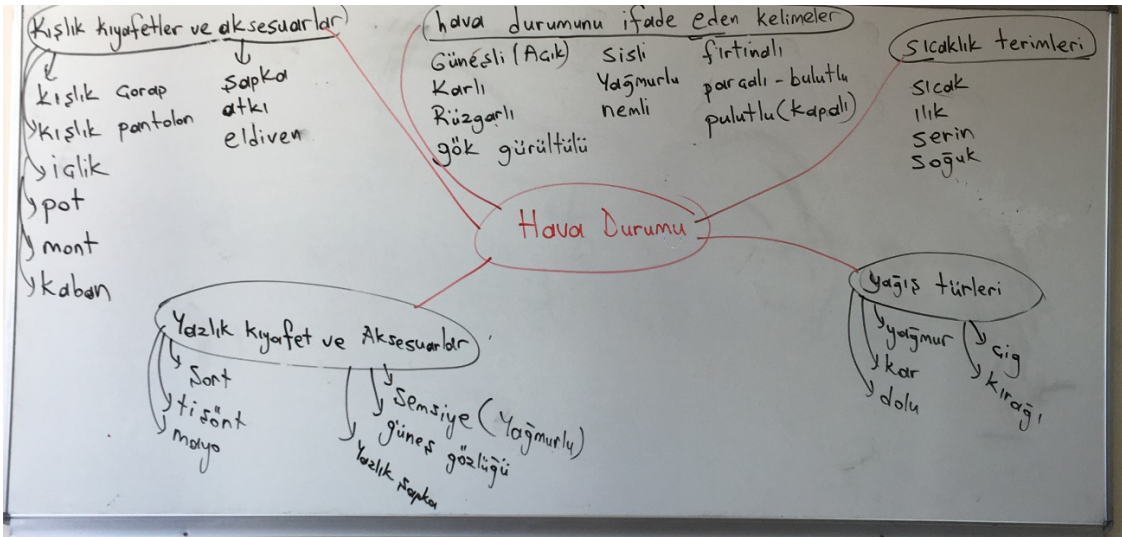 Kışlık kıyafetler ve aksesuarlar
kışlık çorap
kışlık pantolon
içlik
pot
mont
kaban
şapka
atkı
eldiven
hava durumunu ifade eden kelimeler
Güneşli (Açık)
Karlı
Rüzgarlı
gök gürültülü
sisli
Yağmurlu
nemli
fırtınalı
parçalı - bulutlu
pulutlu (kapalı)
sıcaklık terimleri
sıcak
ılık
serin
soğuk
Hava Durumu
Yazlık kıyafet ve Aksesuarlar
Şort
tişönt
mayo
Şemsiye (Yağmurlu)
güneş gözlüğü
Yazlık şapka
yağış türleri
yağmur
kar
dolu
çig
kırağı